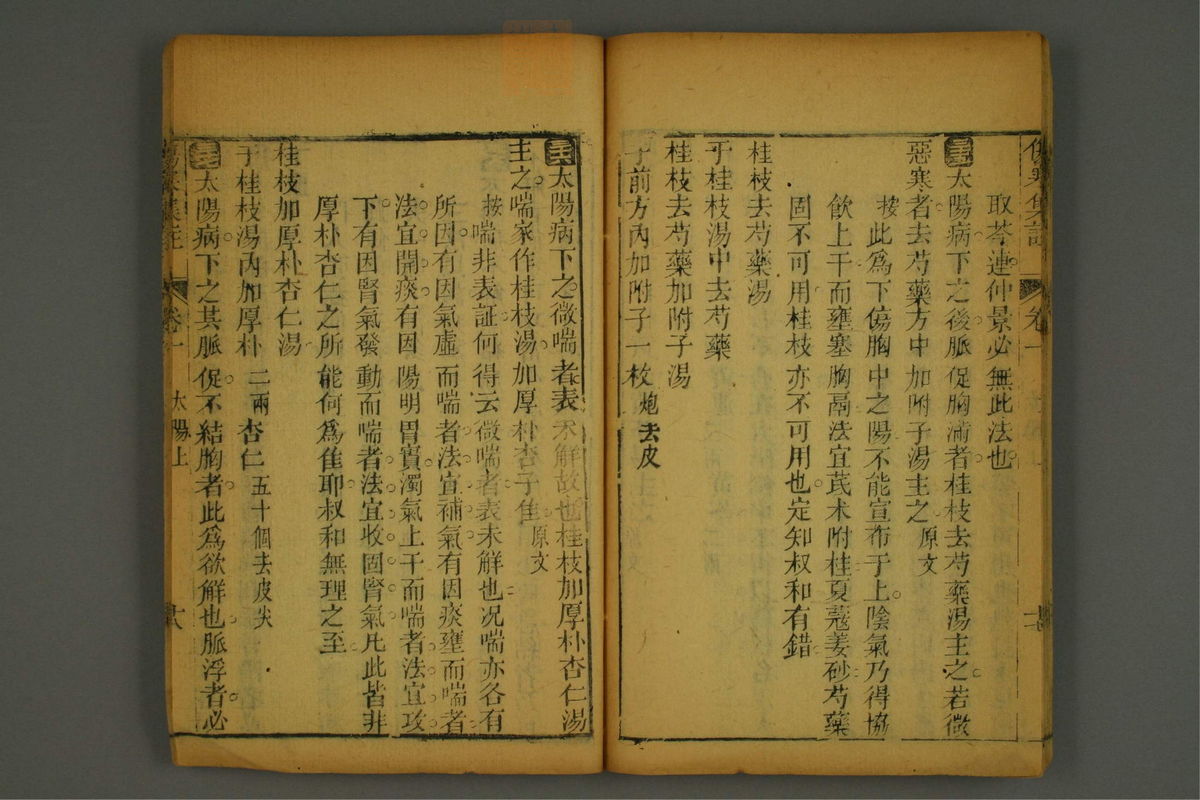 傷寒集註
卷一
十七
取芩連仲景必無此法也
太陽病下之後脈促胸滿者桂枝去芍藥湯主之若微
惡寒者去芍藥方中加附子湯主之 原文
按此為下傷胸中之陽不能宣布于上陰氣乃得協
飲上干而壅塞胸鬲法宜芪朮附桂夏蔻姜砂芍藥
固不可用桂枝亦不可用也定知叔和有錯
桂枝去芍藥湯
于桂枝湯中去芍藥
桂枝去芍藥加附子湯
于前方內加附子一枚炮去皮
太陽病下之微喘者表未解故也桂枝加厚朴杏仁湯
主之喘家作桂枝湯加厚朴杏子隹 原文
按喘非表証何得云微喘者表未解也况喘亦各有
所因有因氣虛而喘者法宜補氣有因痰壅而喘者
法宜開痰有因陽明胃實濁氣上干而喘者法宜攻
下有因腎氣發動而喘者法宜收固腎氣凡此皆非
厚朴杏仁之所能何為隹耶叔和無理之至
桂枝加厚朴杏仁湯
于桂枝湯內加厚朴二兩杏仁五十個去皮尖
太陽病下之其脈促不結胸者此為欲解也脈浮者必
傷寒集註
卷一
太陽上
十八